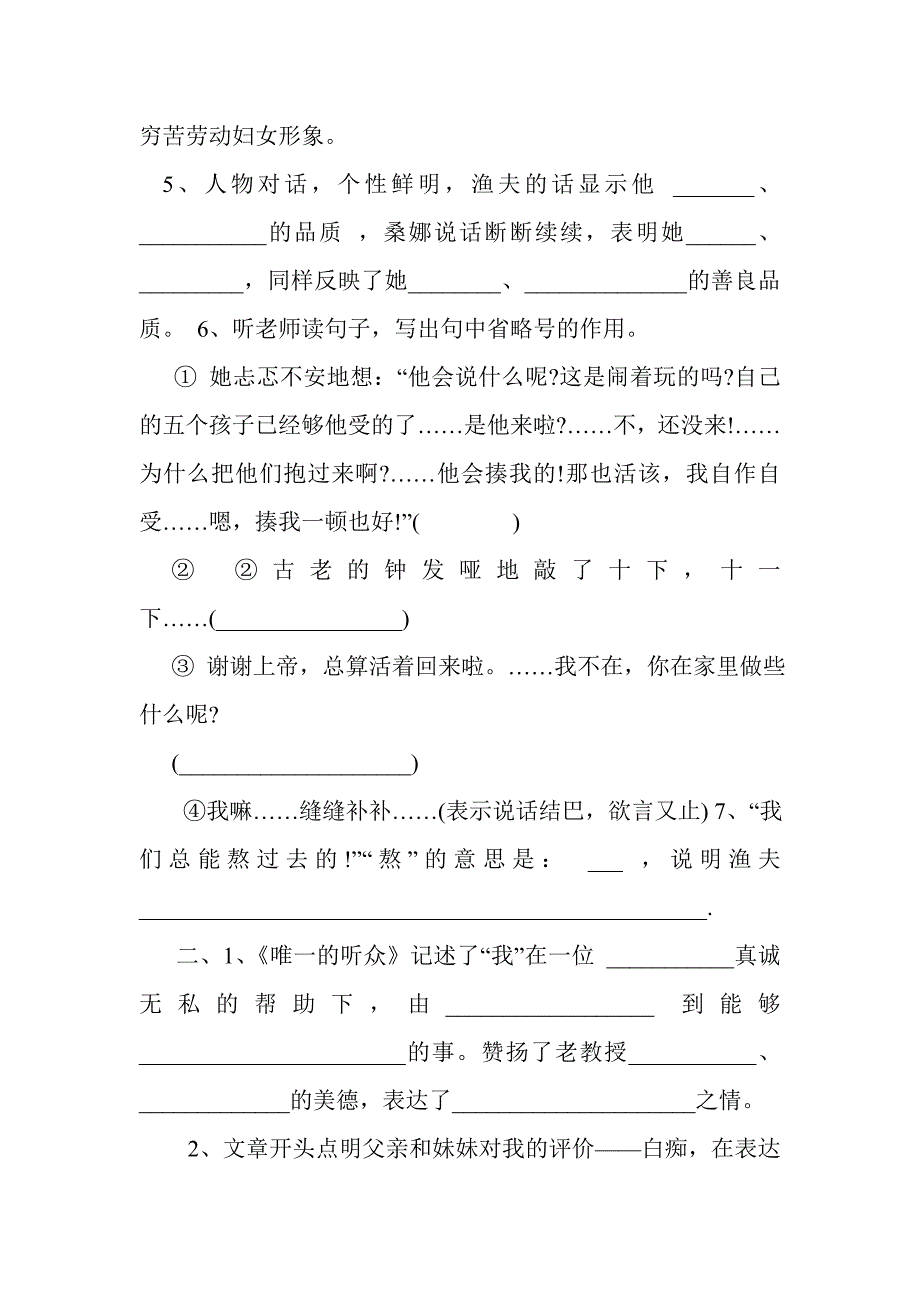 穷苦劳动妇女形象。
5、人物对话，个性鲜明，渔夫的话显示他 _______、
___________的品质 ，桑娜说话断断续续，表明她______、
_________，同样反映了她________、______________的善良品
质。 6、听老师读句子，写出句中省略号的作用。
① 她忐忑不安地想：“他会说什么呢?这是闹着玩的吗?自己
的五个孩子已经够他受的了……是他来啦?……不，还没来!……
为什么把他们抱过来啊?……他会揍我的!那也活该，我自作自
受……嗯，揍我一顿也好!”( )
② ②古老的钟发哑地敲了十下，十一
下……(________________)
③ 谢谢上帝，总算活着回来啦。……我不在，你在家里做些
什么呢?
(____________________)
④我嘛……缝缝补补……(表示说话结巴，欲言又止) 7、“我
们总能熬过去的!”“熬”的意思是： ___ ，说明渔夫
_________________________________________________.
二、1、《唯一的听众》记述了“我”在一位 ___________真诚
无私的帮助下，由__________________ 到能够
_______________________的事。赞扬了老教授___________、
_____________的美德，表达了_____________________之情。
2、文章开头点明父亲和妹妹对我的评价——白痴，在表达